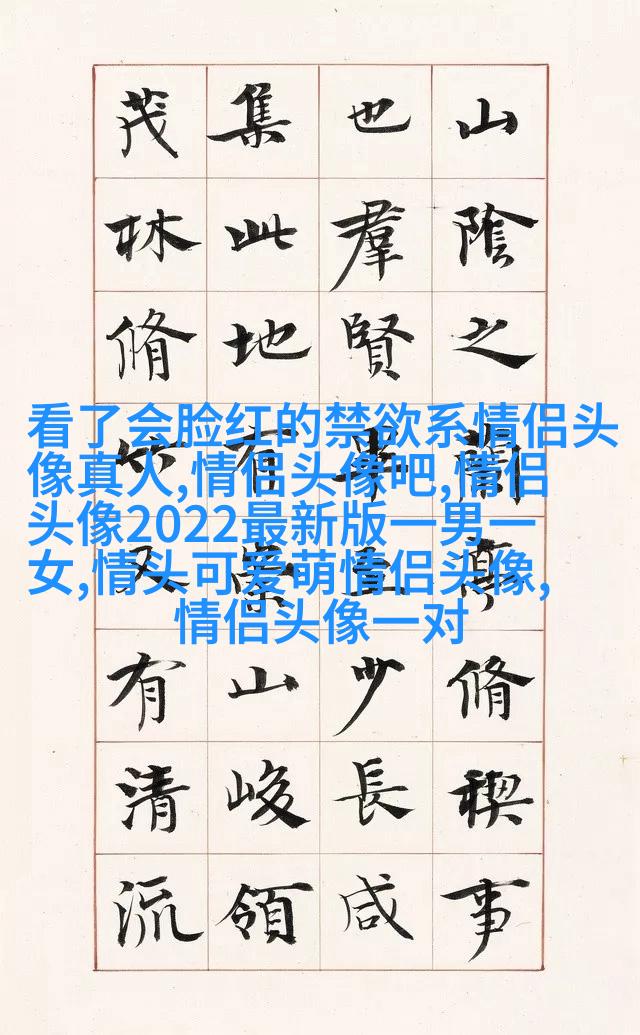 山陰之蘭亭脩稧事
也羣賢畢至少長咸
集此地有崇山峻領
茂林脩竹又有清流
看了会脸红的禁欲系情侣头
像真人,情侣头像吧,情侣
头像2022最新版一男一
女,情头可爱萌情侣头像,
情侣头像一对